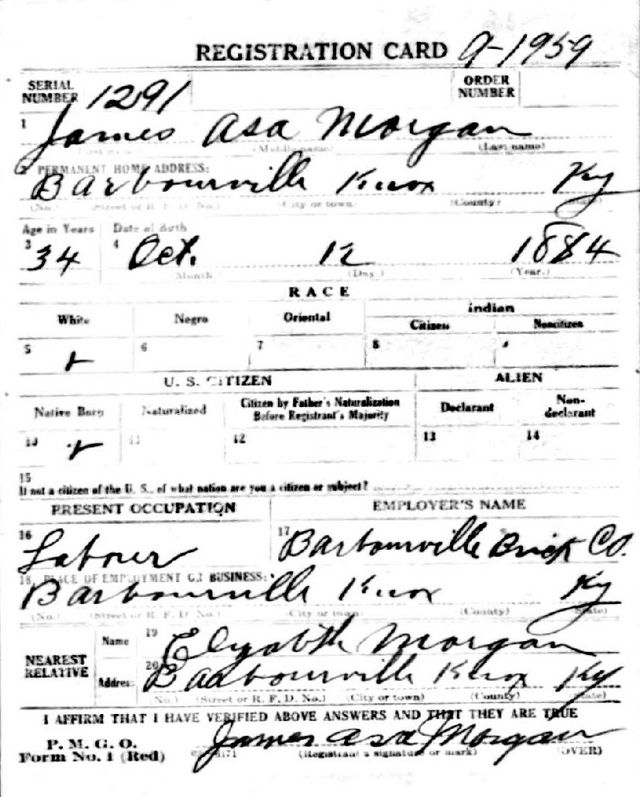 REGISTRATION CARD 9-1959
SERIAL NUMBER 1291 ORDER NUMBER
1 James Asa Morgan
(Middle name) (Last name)
2 PERMANENT HOME ADDRESS:
Barbourville Knox Ky
(No.) (Street or R. F. D. No.) (City or town) (County) (State)
Age in Years Date of Birth
3 34 4 Oct. 12 1884
Month (Day.) (Year.)
RACE
White Negro Oriental Indian
Citizen Noncitizen
5 x 6 7 8
U. S. CITIZEN ALIEN
Native Born Naturalized Citizen by Father's Naturalization Before Registrant's Majority Declarant Non-declarant
10 x 11 12 13 14
15
If not a citizen of the U. S., of what nation are you a citizen or subject?
PRESENT OCCUPATION EMPLOYER'S NAME
16 Laborer 17 Barbourville Brick Co.
18 PLACE OF EMPLOYMENT OR BUSINESS:
Barbourville Knox Ky
(No.) (Street or R. F. D. No.) (City or town) (County) (State)
NEAREST RELATIVE Name 19 Elyabith Morgan
Address 20 Barbourville Knox Ky
(No.) (Street or R. F. D. No.) (City or town) (County) (State)
I AFFIRM THAT I HAVE VERIFIED ABOVE ANSWERS AND THAT THEY ARE TRUE
P. M. G. O.
Form No. 1 (Red) James Asa Morgan
(Registrant's signature or mark) (OVER)